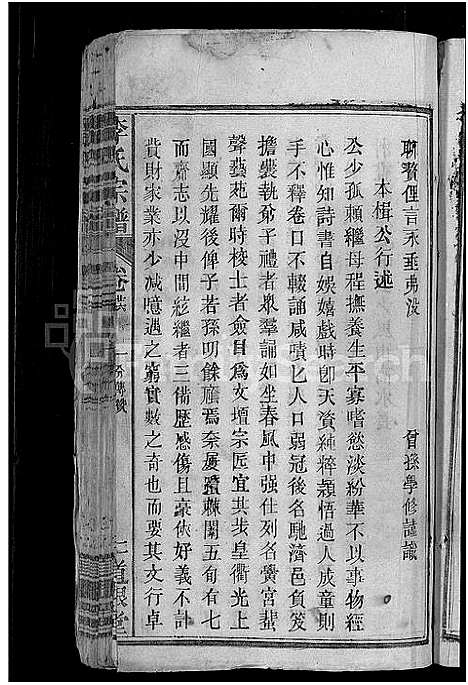 聊贅俚言永垂弗沒
曾孫學修謹識
本楫公行述
公少孤賴繼母程撫養生平寡嗜慾淡紛華不以事物經
心惟知詩書自娛嬉戲時卽天資純粹穎悟過人成童則
手不釋卷口不輟誦咸嘖乚人口弱冠後名馳濟邑負笈
擔囊執弟子禮者衆羣誦如坐春風中强仕列名黌宮蜚
聲藝苑爾時棱士者僉目爲文壇宗匠宜其步皇衢光上
國顯先耀後俾子若孫明餘廕焉奈屢躓棘闈五旬有七
而齎志以沒中間絃繼者三備歷感傷且豪俠好義不計
貲財家業亦少减憶遇之窮實數之奇也而要其文行卓
李氏宗譜
卷